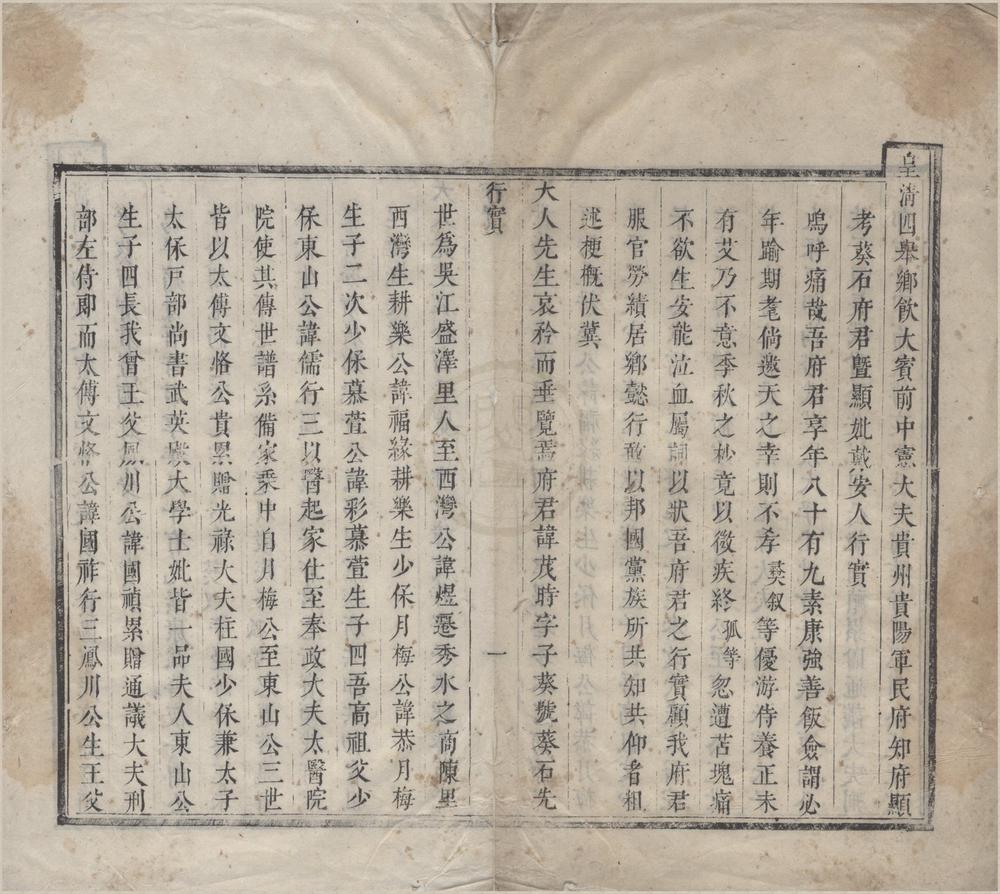 皇淸四舉鄉飮大賓前中憲大夫貴州貴陽軍民府知府顯
考葵石府君曁顯妣戴安人行實
嗚呼痛哉吾府君享年八十有九素康強善飯僉謂必
年踰期耄倘邀天之幸則不孝彛叙等優游侍養正未
有艾乃不意季秋之杪竟以微疾終孤等忽遭苫塊痛
不欲生安能泣血屬詞以狀吾府君之行實顧我府君
服官勞績居鄉懿行敢以邦國黨族所共知共仰者粗
述梗槪伏冀
大人先生哀矜而垂覽焉府君諱茂時字子葵號葵石先
行實
一
世爲吳江盛澤里人至西灣公諱煜遷秀水之商陳里
西灣生耕樂公諱福緣耕樂生少保月梅公諱恭月梅
生子二次少保慕萱公諱彩慕萱生子四吾高祖父少
保東山公諱儒行三以醫起家仕至奉政大夫太醫院
院使其傳世譜系備家乘中自月梅公至東山公三世
皆以太傳文恪公貴累贈光祿大夫柱國少保兼太子
太保戸部尚書武英殿大學士妣皆一品夫人東山公
生子四長我曾王父鳳川公諱國禎累贈通議大夫刑
部左侍即而太傳文恪公諱國祚行三鳳川公生王父